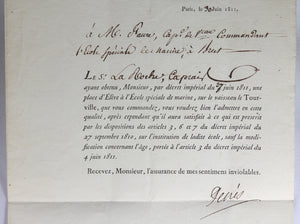 Paris, le 30 Juin 1811.
à M. Cap.ne de V.au Commandant
l'Ecole spéciale de marine, à Brest
Le S.r La Roche,
ayant obtenu, Monsieur, par décret impérial du 7 juin 1811,
une place d'Elève à l'Ecole spéciale de marine, sur le vaisseau le Tour-
ville, que vous commandez, vous voudrez bien l'admettre en cette
qualité, après cependant qu'il aura satisfait à ce qui est prescrit
par les dispositions des articles 3, 6 et 7 du décret impérial du
27 septembre 1810, sur l'institution de ladite école, sauf la modification
concernant l'âge, portée à l'article 3 du décret impérial du
4 juin 1811.
Recevez, Monsieur, l'assurance de mes sentimens inviolables.
Decrès